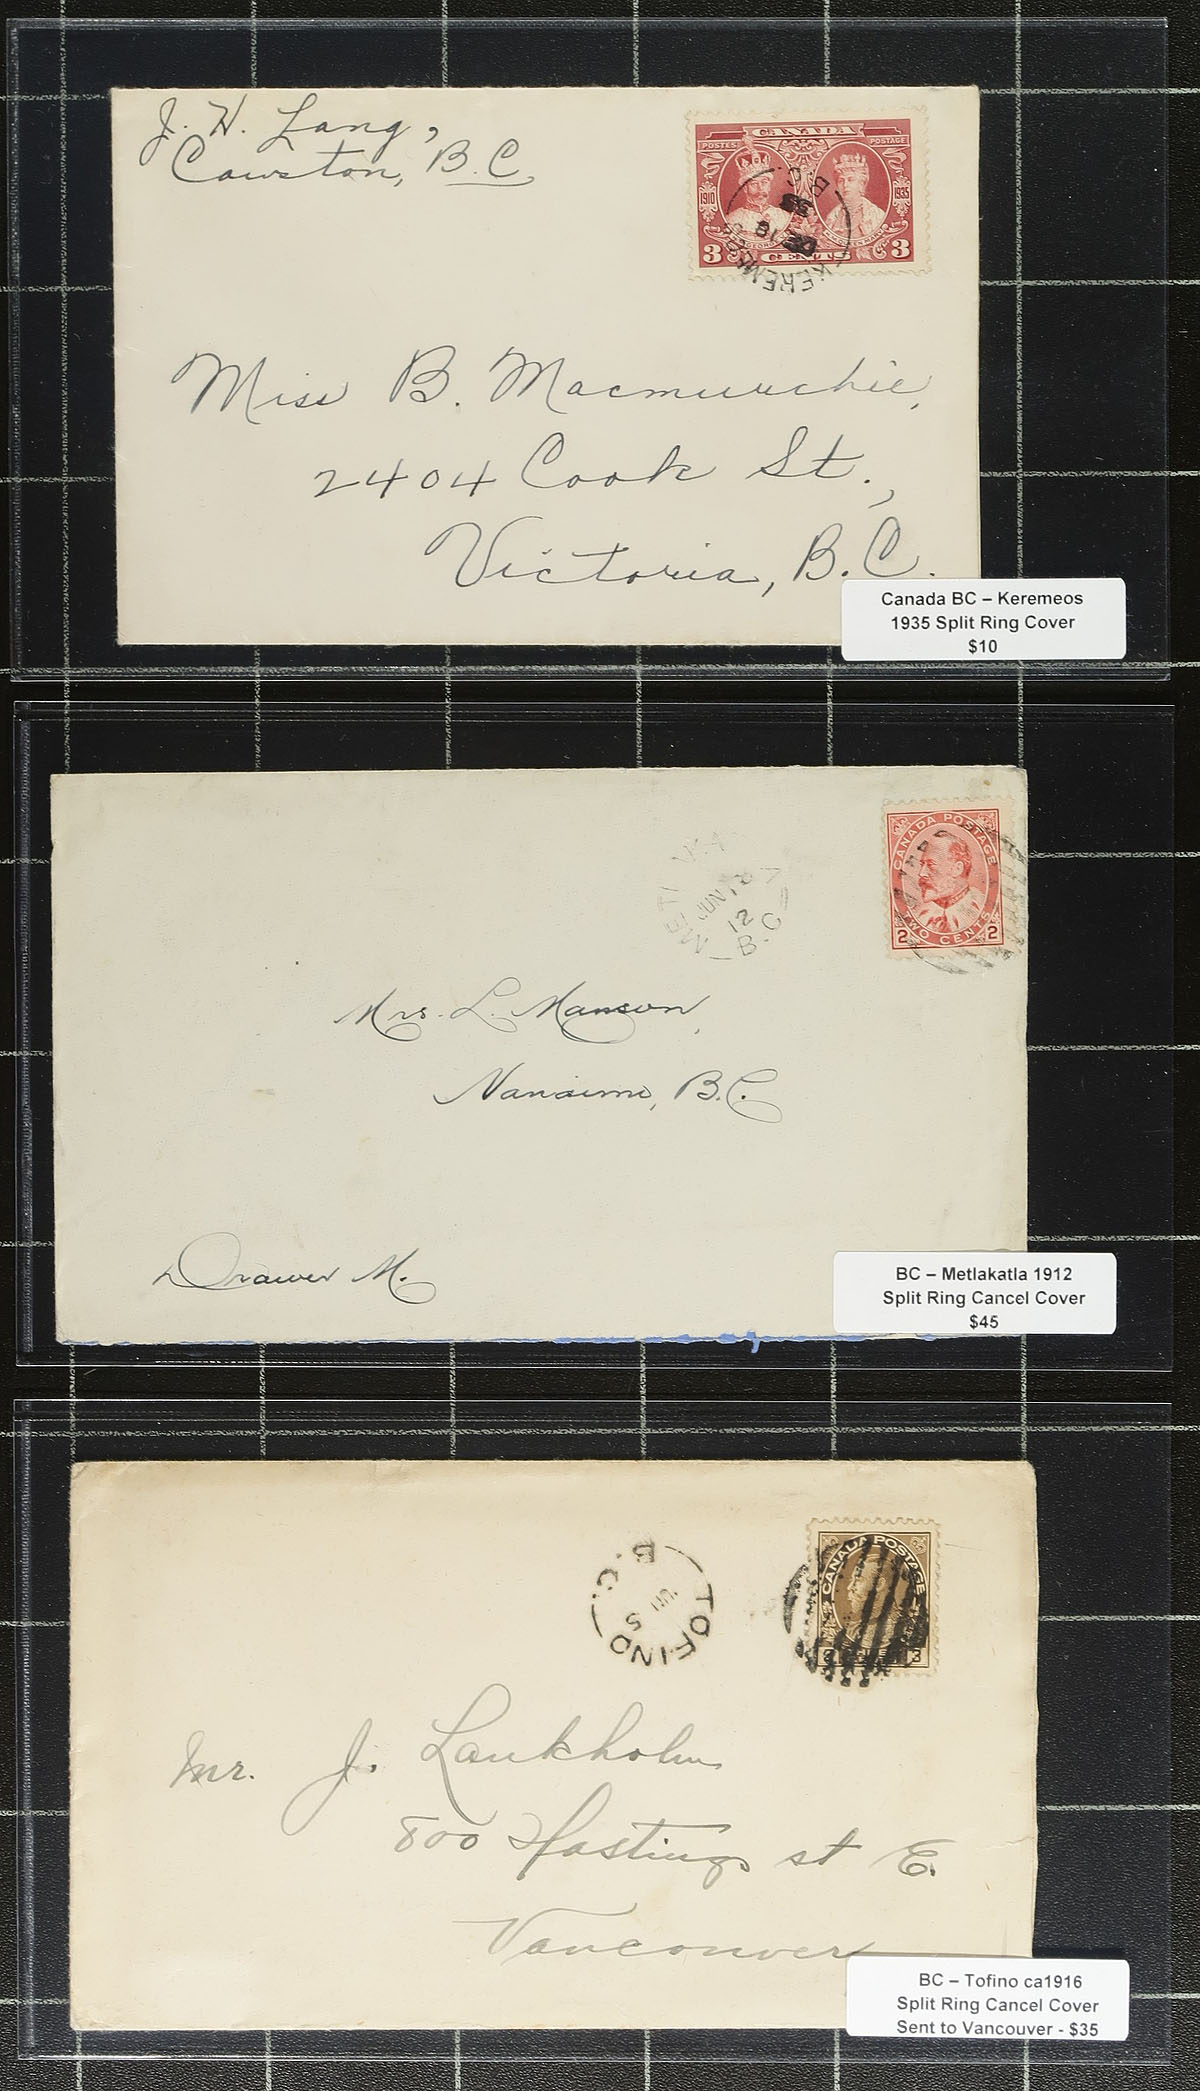 J. H. Lang,
Cawston, B.C.
CANADA
POSTES POSTAGE
1910 1935
3 CENTS 3
KEREMEOS
DE 18
35
B.C.
Miss B. Macmurchie,
2404 Cook St.,
Victoria, B.C.
Canada BC – Keremeos
1935 Split Ring Cover
$10
CANADA POSTAGE
2 TWO CENTS 2
JUN 18
12
B.C
Mrs. L. Manson,
Nanaimo, B.C.
Drawer M.
BC – Metlakatla 1912
Split Ring Cancel Cover
$45
CANADA POSTAGE
3
TOFINO
B.C.
Mr. J. Lankholm
800 Hastings st E.
Vancouver
BC – Tofino ca1916
Split Ring Cancel Cover
Sent to Vancouver - $35